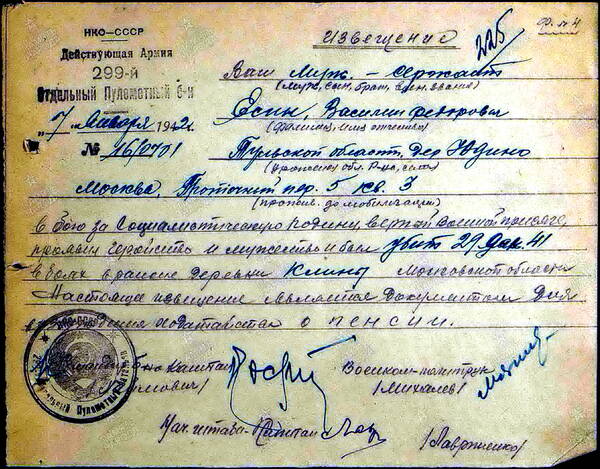 НКО-СССР
Действующая Армия
299-й
Отдельный Пулеметный б-н
"7" января 1942 г.
№ 16/0701
Извещение
225
Ф. № 4
Ваш Муж - сержант
(муж, сын, брат, воен. звание)
Есин, Василий Федорович
(фамилия, имя отчество)
Тульской области, дер Юдино
Москва, Проточный пер. 5 кв. 3
в бою за Социалистическую Родину, верный Военной присяге,
проявив геройство и мужество и был убит 29 дек. 41
в боях в районе деревни Клины Московской области
Настоящее извещение является документом для
ходатайства о пенсии.
б-на Капитан
Военком-политрук
/Михалев/
Нач. штаба-Капитан
/Лавриненко/